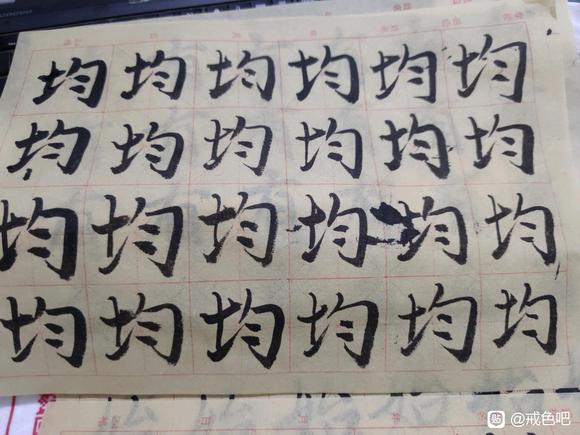 均均均均均均
均均均均均均
均均均均均均
均均均均均均
@戒色吧